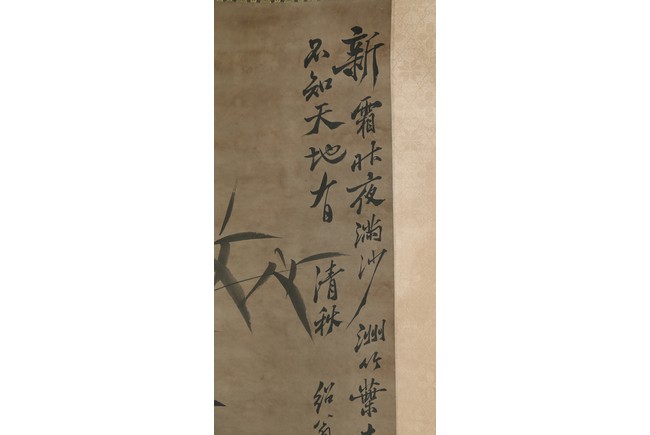 新霜昨夜滿沙洲竹葉
不知天地有清秋
紹